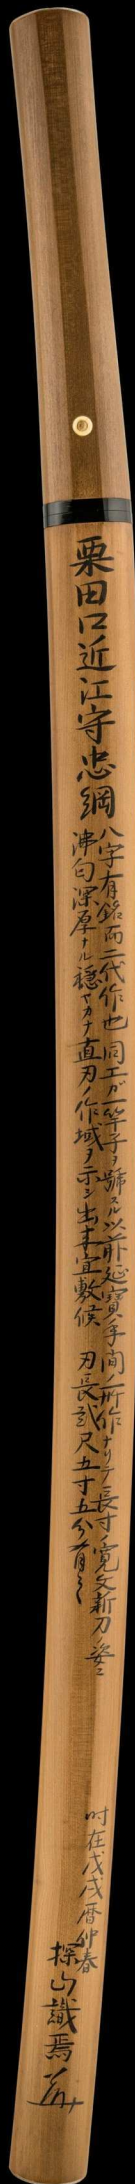 粟田口近江守忠綱
八字有銘而二代作也 同工ガ一竿子ヲ號スル以前延寶年間ノ所作ナリテ長寸ノ寛文新刀ノ姿ニ
沸匂深厚ナル穏ヤカナ直刃ノ作域ヲ示シ出来宜敷候 刃長貳尺五寸五分有之
时在戊戌暦仲春
探山識焉